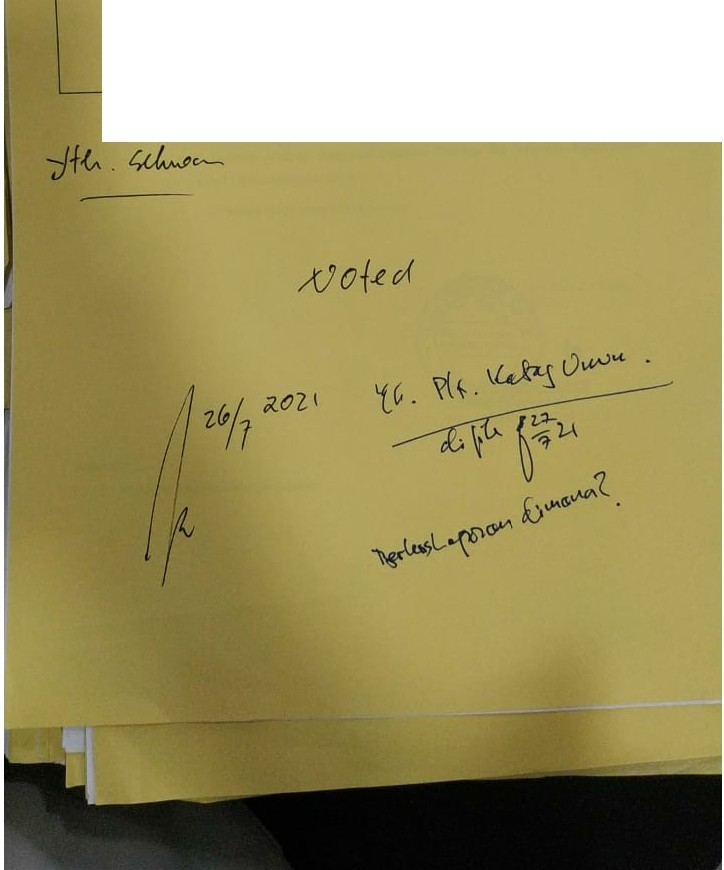 Yth. Sekwan
Noted
26/7 2021
Yth. Plt. Kabag Umum.
di file 27/7 21
Berkas Laporan dimana?